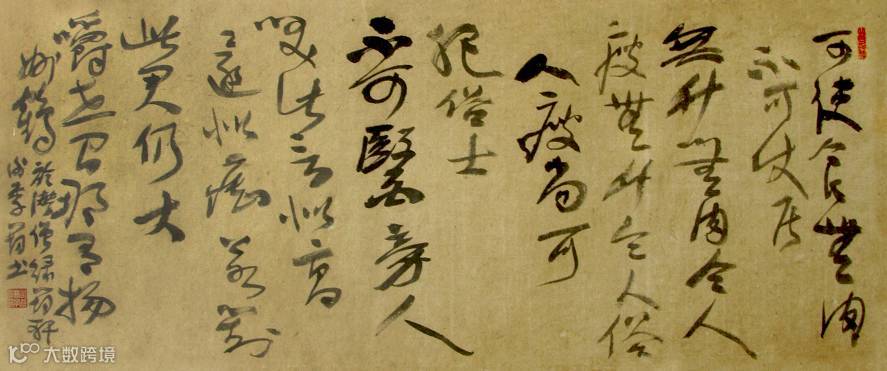 可使食無肉
不可使居
無竹無肉令人
瘦無竹令人俗
人瘦尚可
肥俗士
不可醫旁人
笑此言似高
還似痴若對
此君仍大
嚼世间那有揚
州鶴 於潛僧綠筠軒
大数跨境